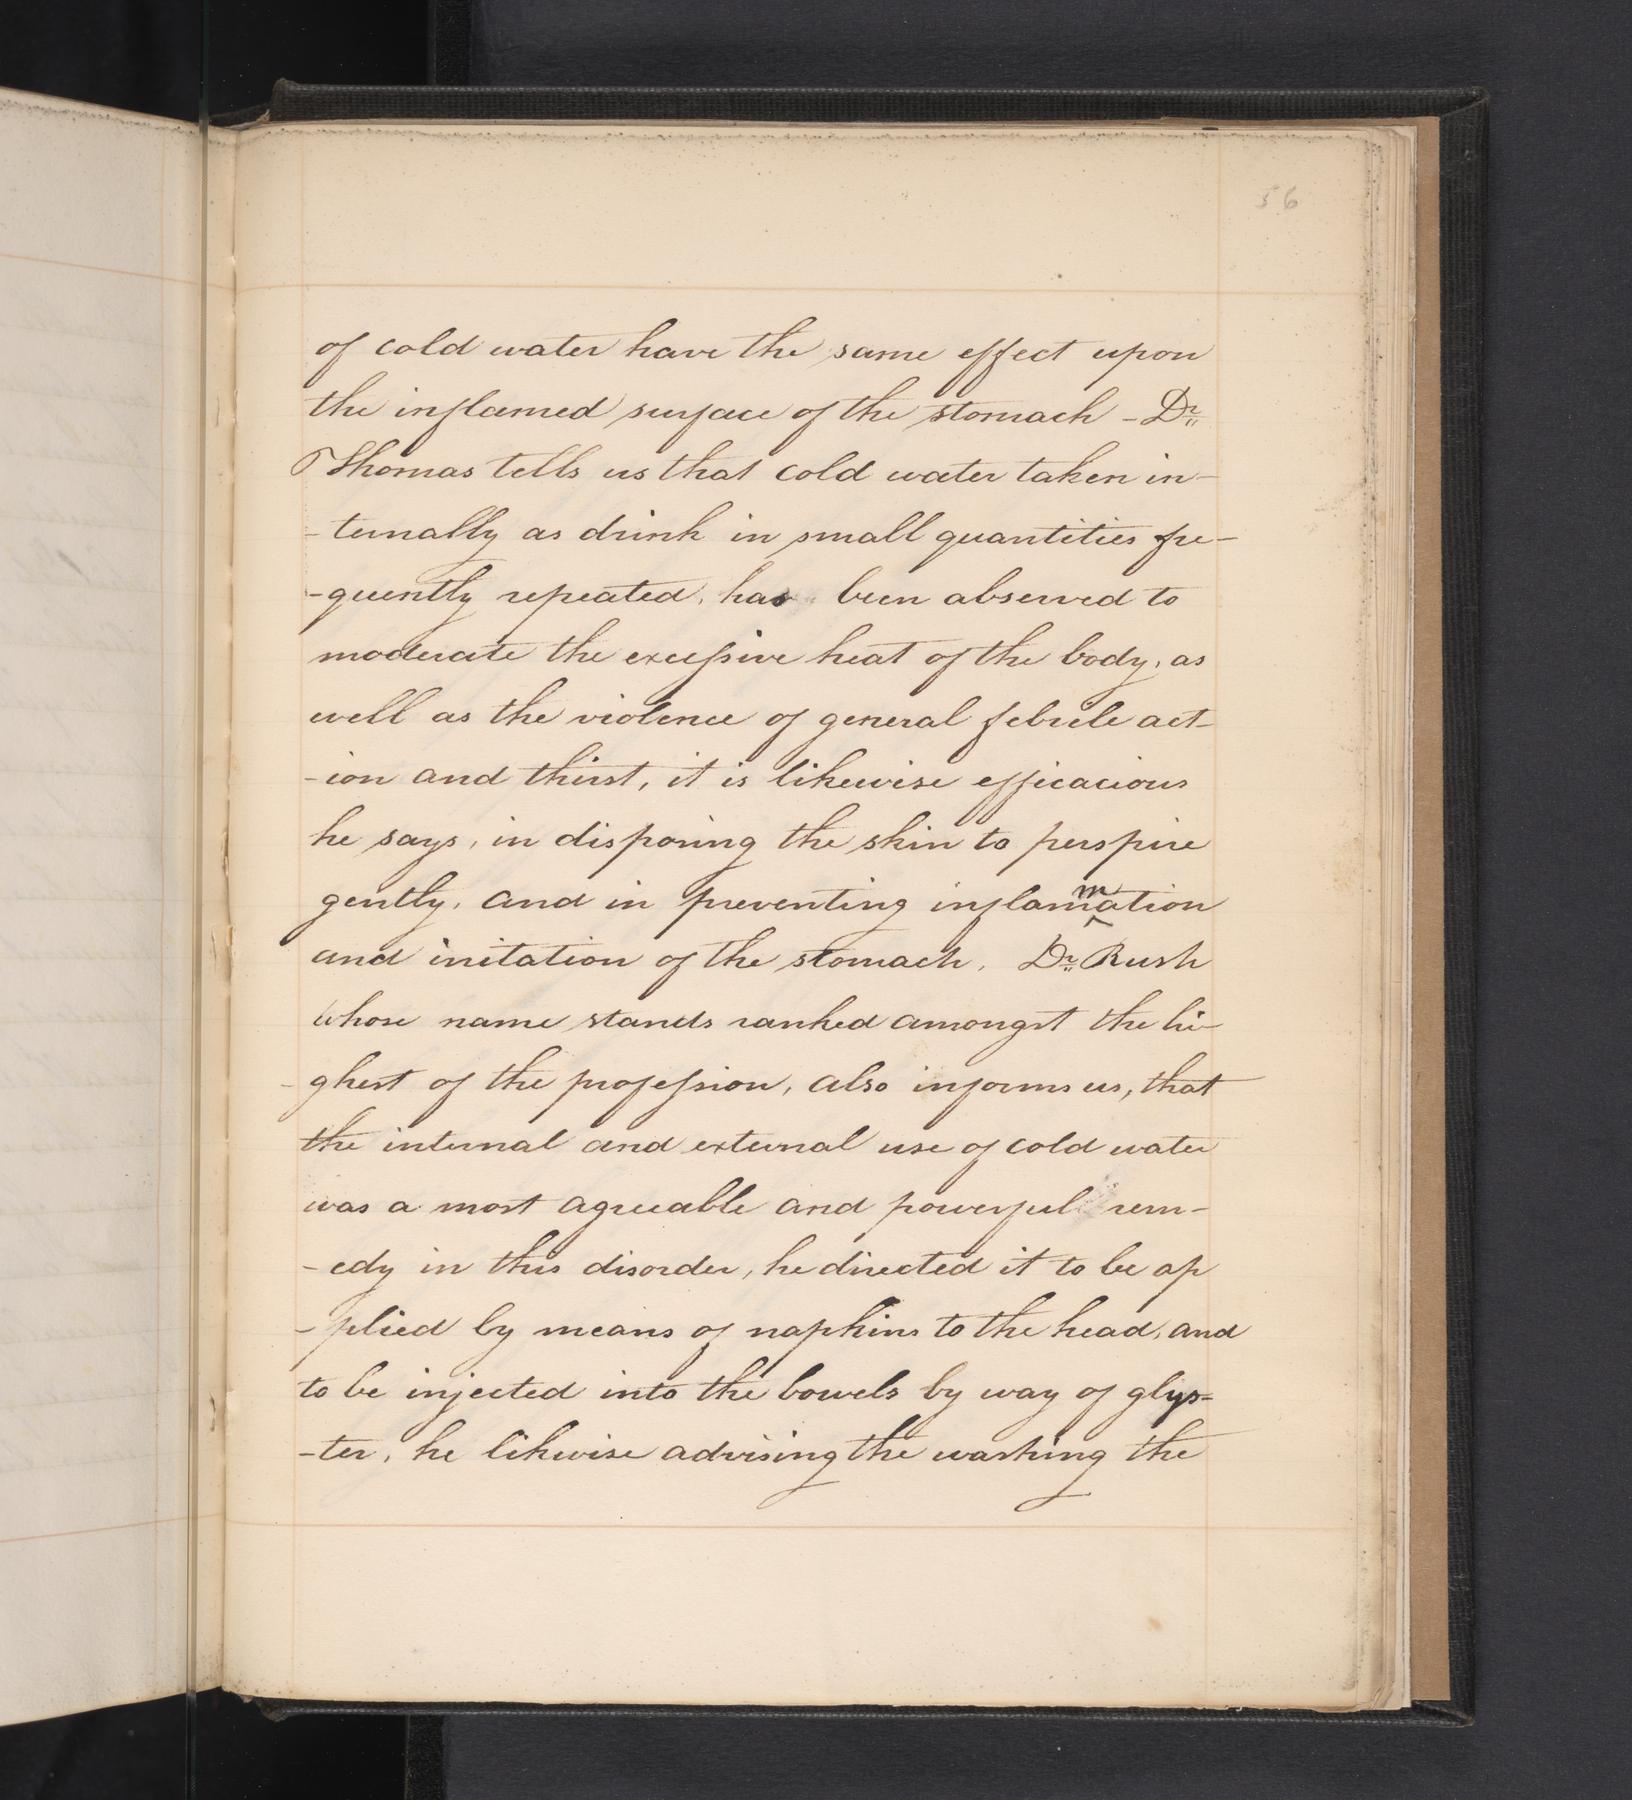 56
of cold water have the same effect upon
the inflamed surface of the stomach - Dr.
Thomas tells us that cold water taken in-
- ternally as drink in small quantities fre-
- quently repeated, has been observed to
moderate the excessive heat of the body, as
well as the violence of general febrile act-
- ion and thirst, it is likewise efficacious
he says, in disposing the skin to perspire
gently, and in preventing inflammation
and irritation of the stomach. Dr. Rush
whose name stands ranked amongst the hi-
- ghest of the profession, also informs us, that
the internal and external use of cold water
was a most agreeable and powerful rem-
- edy in this disorder, he directed it to be ap
- plied by means of napkins to the head, and
to be injected into the bowels by way of glys=
- ter, he likwise advising the washing the